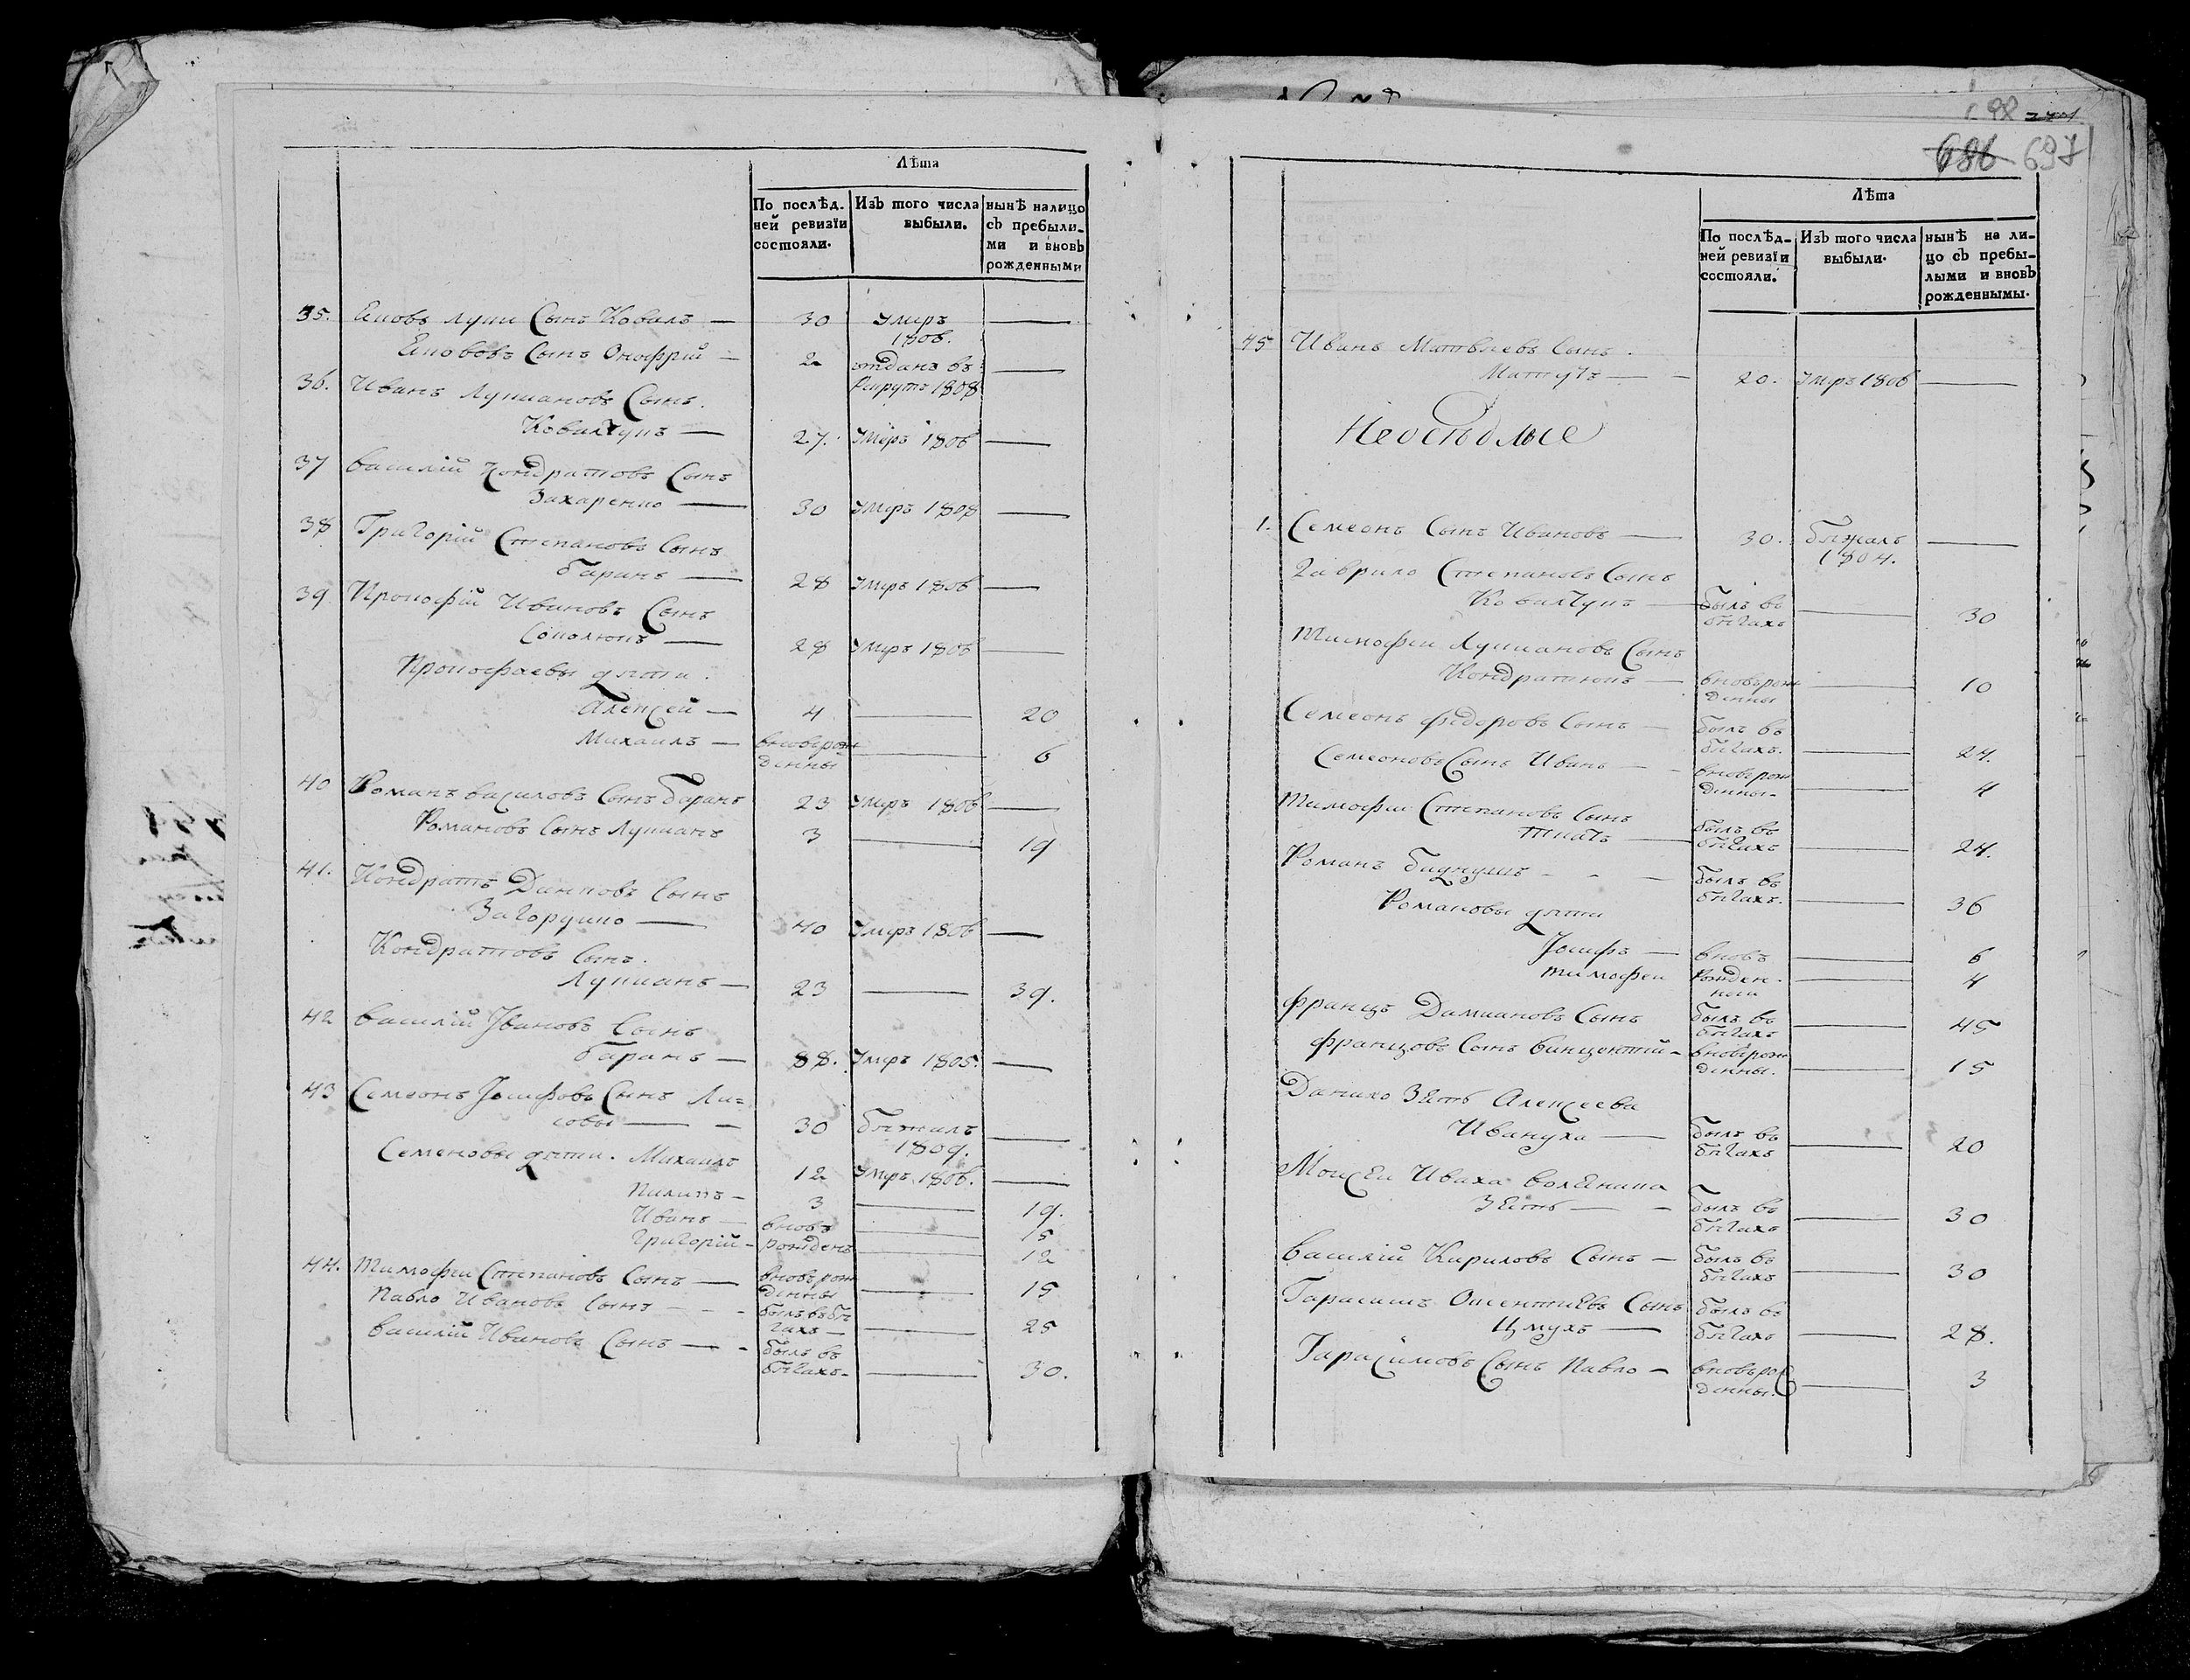 Лѣта
По послѣд- Изъ того числа нынѣ налицо
ней ревизїи выбыли. съ пребыли-
состояли. ми и вновь
рожденными
35. Яковъ Луки Сынъ Коваль — 30 Умръ —
1806.
Яковов Сынъ Онофрій — 2 отданъ въ —
Рекрутъ 1808
36. Иванъ Лукиановъ Сынъ.
Ковалчукъ — 27. Умеръ 1806 —
37 Василій Кондратовъ Сынъ
Захаренко — 30 Умръ 1808 —
38 Григорій Степановъ Сынъ
Баранъ — 28 Умръ 1806 —
39 Прокофій Ивановъ Сынъ
Соколюкъ — 28 Умръ 1806 —
Прокофиевы дѣти.
Алексей — 4 — 20
Михаилъ — вновьрож — 6
денны
40 Романъ Василовъ Сынъ Баранъ 23 Умръ 1806 —
Романовъ Сынъ Лукианъ 3 — 19
41. Кондратъ Данковъ Сынъ
Загоруико — 40 Умръ 1806 —
Кондратовъ Сынъ.
Лукианъ — 23 — 39.
42 Василій Ивановъ Сынъ
Баранъ — 88. Умръ 1805. —
43 Семеонъ Іосифовъ Сынъ Ли=
совы — 30 бѣжалъ —
1809.
Семеновы дѣти. Михаилъ 12 Умръ 1806. —
Пилипъ — 3 — 19.
Иванъ — вновь — 15
Григорій — рожденъ — 12
44. Тимофеи Степановъ Сынъ — вновьрож — 15
денны
Павло Ивановъ Сынъ — былъ въ бѣ
гахъ — 25
Василій Ивановъ Сынъ — былъ въ
бѣгахъ — 30.
698
686 697
Лѣта
По послѣд- Изъ того числа нынѣ на ли-
ней ревизїи выбыли. цо съ пребы-
состояли. лыми и вновь
рожденнымы.
45 Иванъ Матвѣевъ Сынъ.
— 20. Умръ 1806 —
Неосѣдлые
1. Семеонъ Сынъ Ивановъ — 30. бѣжалъ —
1804.
Гаврило Степановъ Сынъ
Ковалчукъ — былъ въ — 30
бѣгахъ
Тимофеи Лукиановъ Сынъ
Кондратюкъ — вновьрож — 10
денны
Семеонъ Федоровъ Сынъ — былъ въ
бѣгахъ. — 24.
Семеоновъ Сынъ Иванъ — вновьрож
денны — 4
Тимофеи Степановъ Сынъ
Ткачъ — былъ въ
бѣгахъ — 24.
Романъ — былъ въ
бѣгахъ. — 36
Романовы дѣти
Іосифъ — вновь — 6
Тимофеи рожден- — 4
ныи
Францъ Дамиановъ Сынъ былъ въ
бѣгахъ — 45
Францовъ Сынъ Винцентій — вновьрож
денны. — 15
Данило Зять Алексеева
Ивануха — былъ въ — 20
бѣгахъ
Моисеи Иваха Волянина
Зять — былъ въ — 30
бѣгахъ
Василій Кириловъ Сынъ — былъ въ
бѣгахъ — 30
Гарасимъ Сынъ былъ въ
Цмухъ — бѣгахъ — 28.
Гарасимовъ Сынъ Павло — вновьрож
денны. — 3